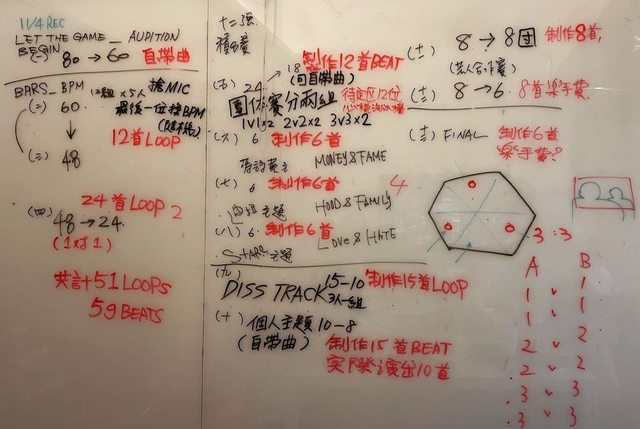 11/4 REC
LET THE GAME _ AUDITION
BEGIN
(一) 80 → 60 自帶曲
BARS_BPM 12組 x 5人 搶MIC
(二) 60 最後一位接BPM
12首LOOP
(三) 48
24首LOOP 2
(四) 48 → 24
(1對1)
共計51LOOPS
59BEATS
十二強
種子賽
(五) 24 → 18 製作12首BEAT
(自帶曲)
團体賽分兩組 待定位12位
1V1x2 2V2x2 3V3x2
(六) 6 製作6首
MONEY & FAME
(七) 6 製作6首 4
主題 HOOD & FAMILY
(八) 6 製作6首
LOVE & HATE
主題
(九) DISS TRACK 15-10 製作15首LOOP
3人一組
(十) 個人主題 10-8
(自帶曲) 製作15首BEAT
实際演出10首
(十一) 8 → 8團 製作8首,
(藝人合作賽)
(十二) 8 → 6. 8首樂手費.
(十三) FINAL 製作6首
樂手費?
3 : 3
A B
1 v 1
1 v 1
2 v 2
2 v 2
3 v 3
3 v 3